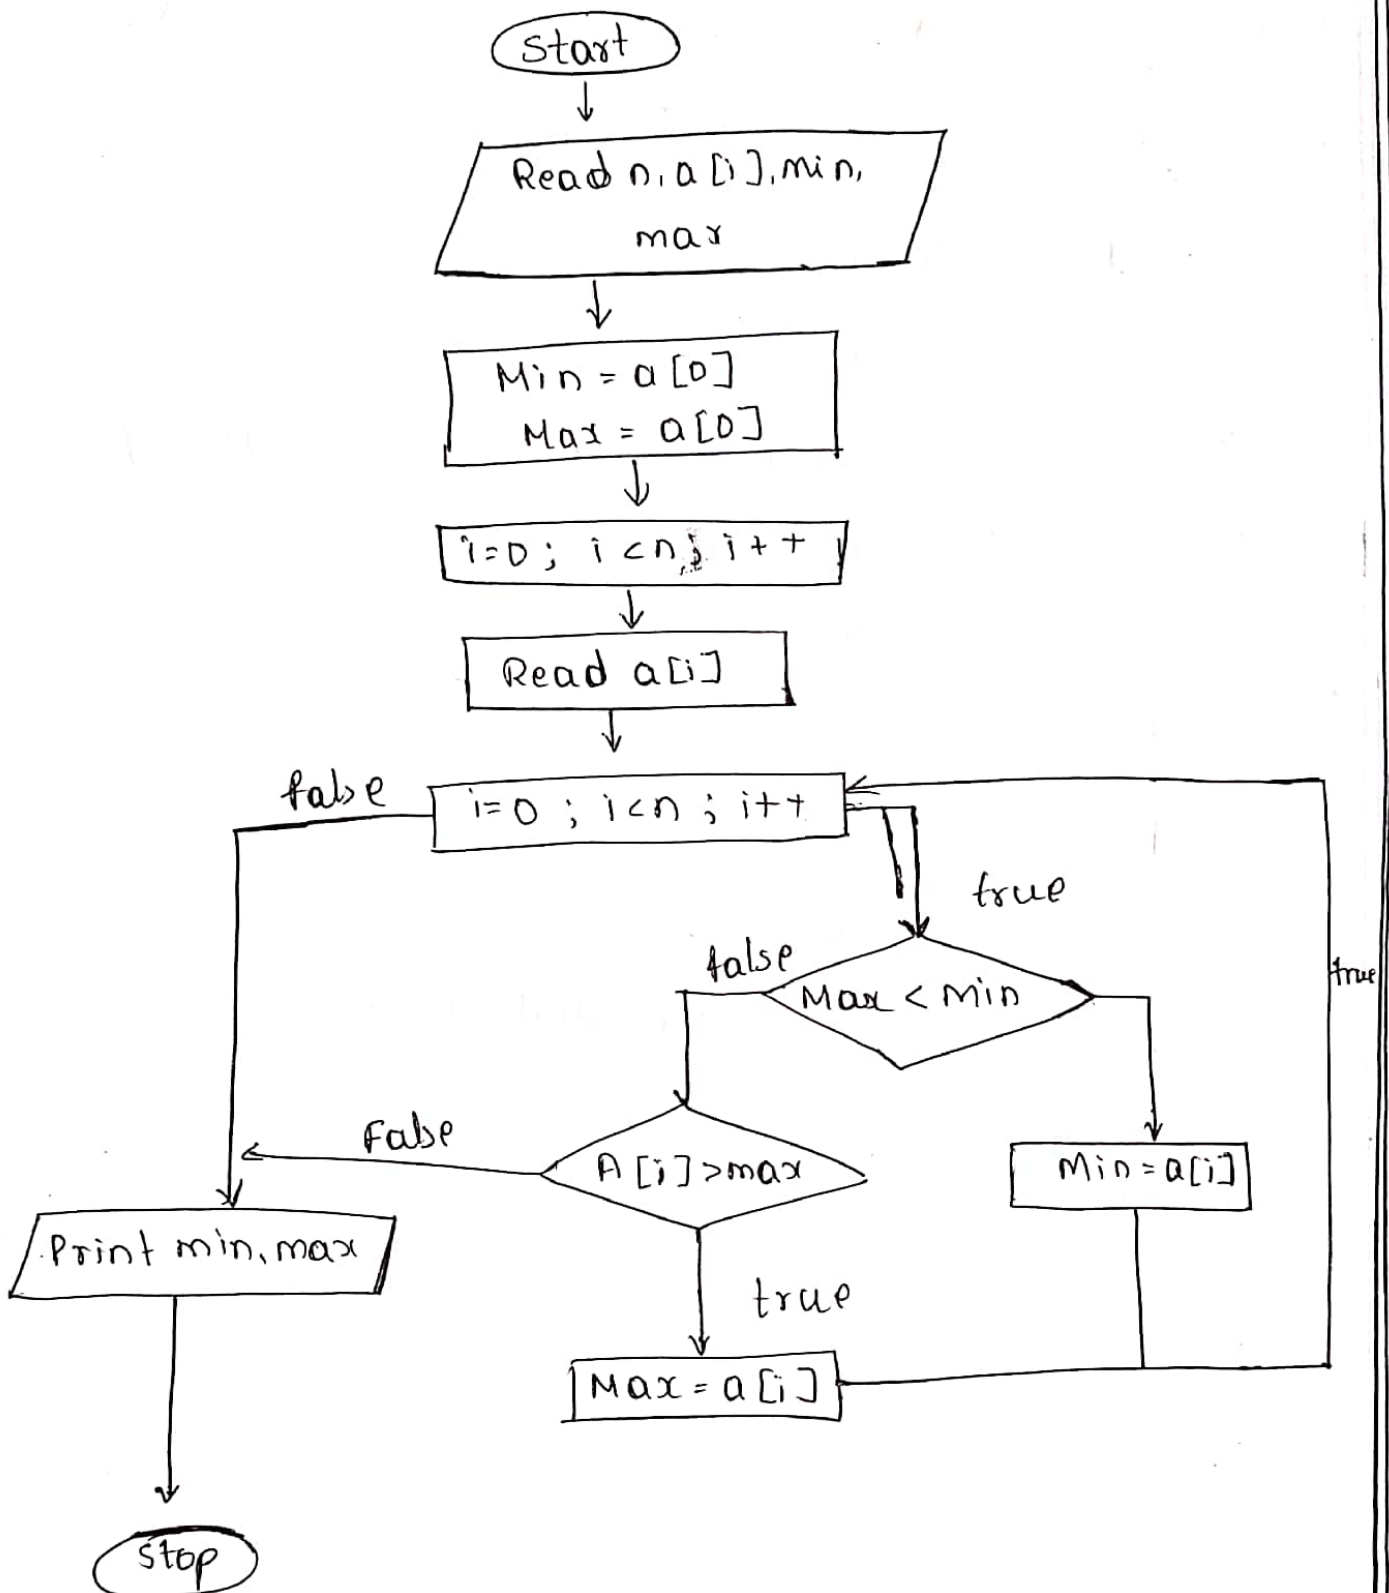 Start
Read n, a[i], min,
max
Min = a[0]
Max = a[0]
i=0 ; i<n; i++
Read a[i]
false
i=0 ; i<n ; i++
true
false
Max < Min
true
False
A[i]>max
Min=a[i]
Print min, max
true
Max = a[i]
stop